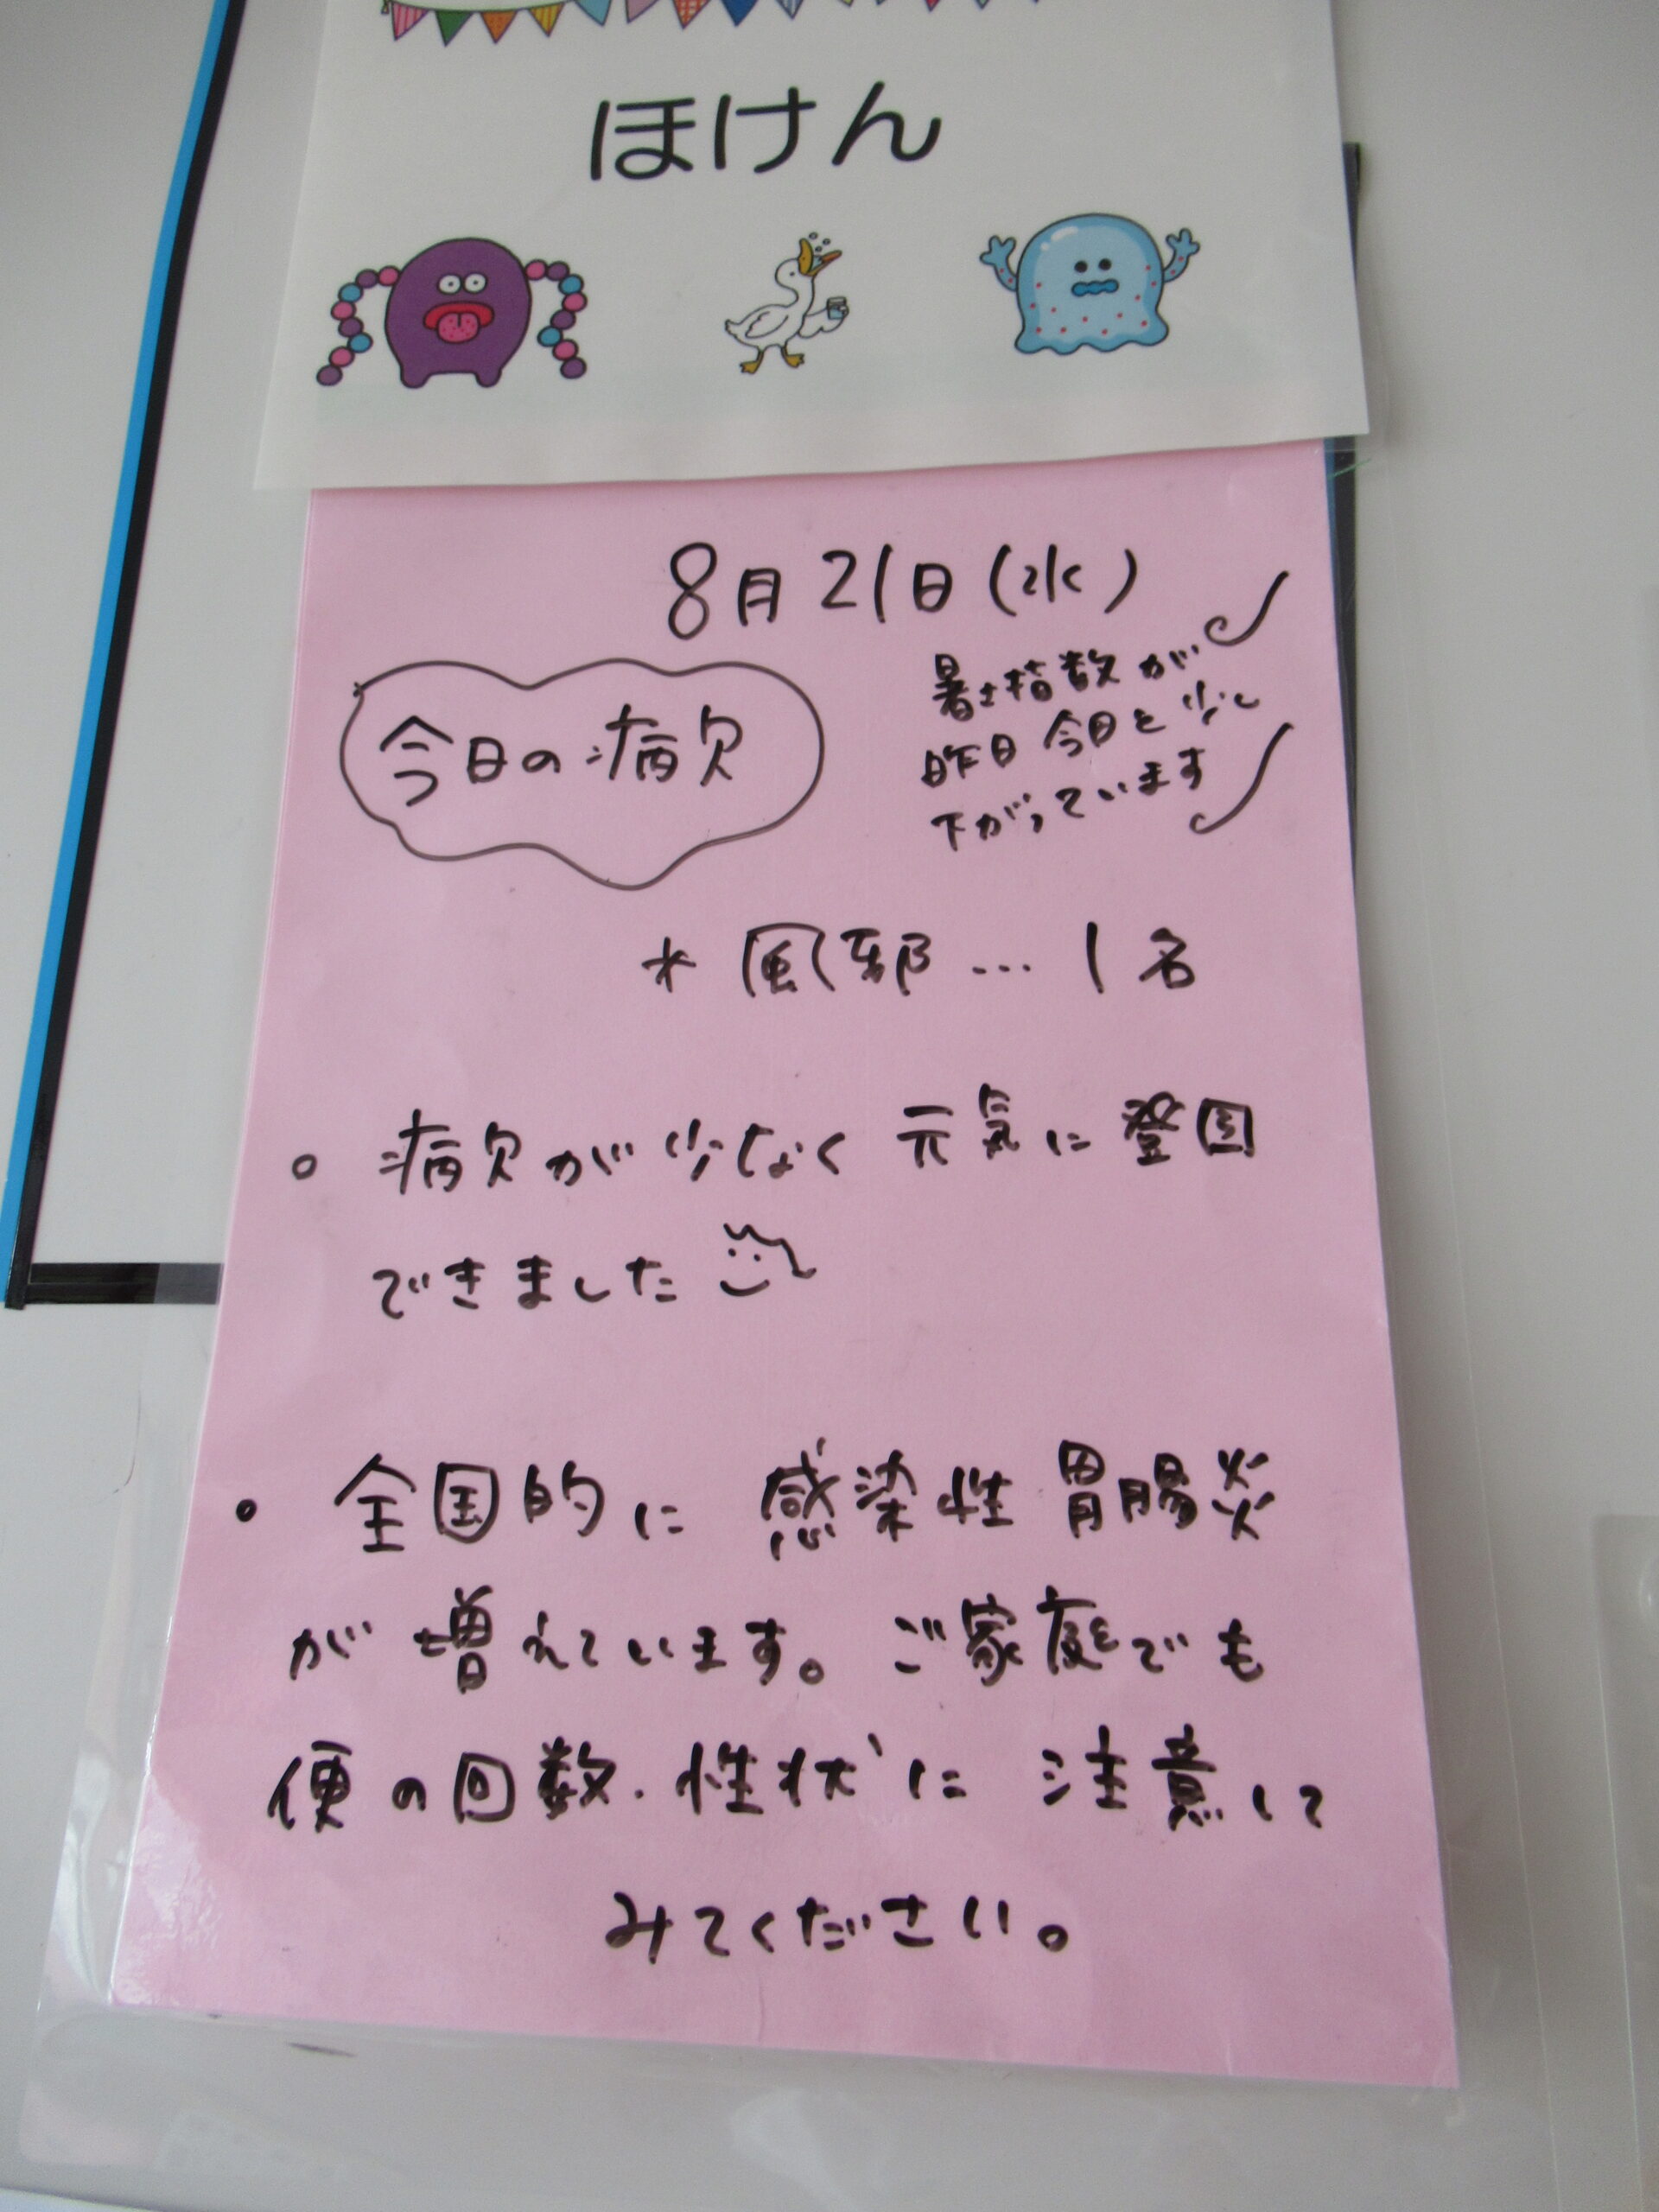 ほけん
8月21日(水)
今日の病欠
暑さ指数が
昨日今日と少し
下がっています
* 風邪…1名
。病欠が少なく元気に登園
できました
。全国的に感染性胃腸炎
が増えています。ご家庭でも
便の回数・性状に注意して
みてください。